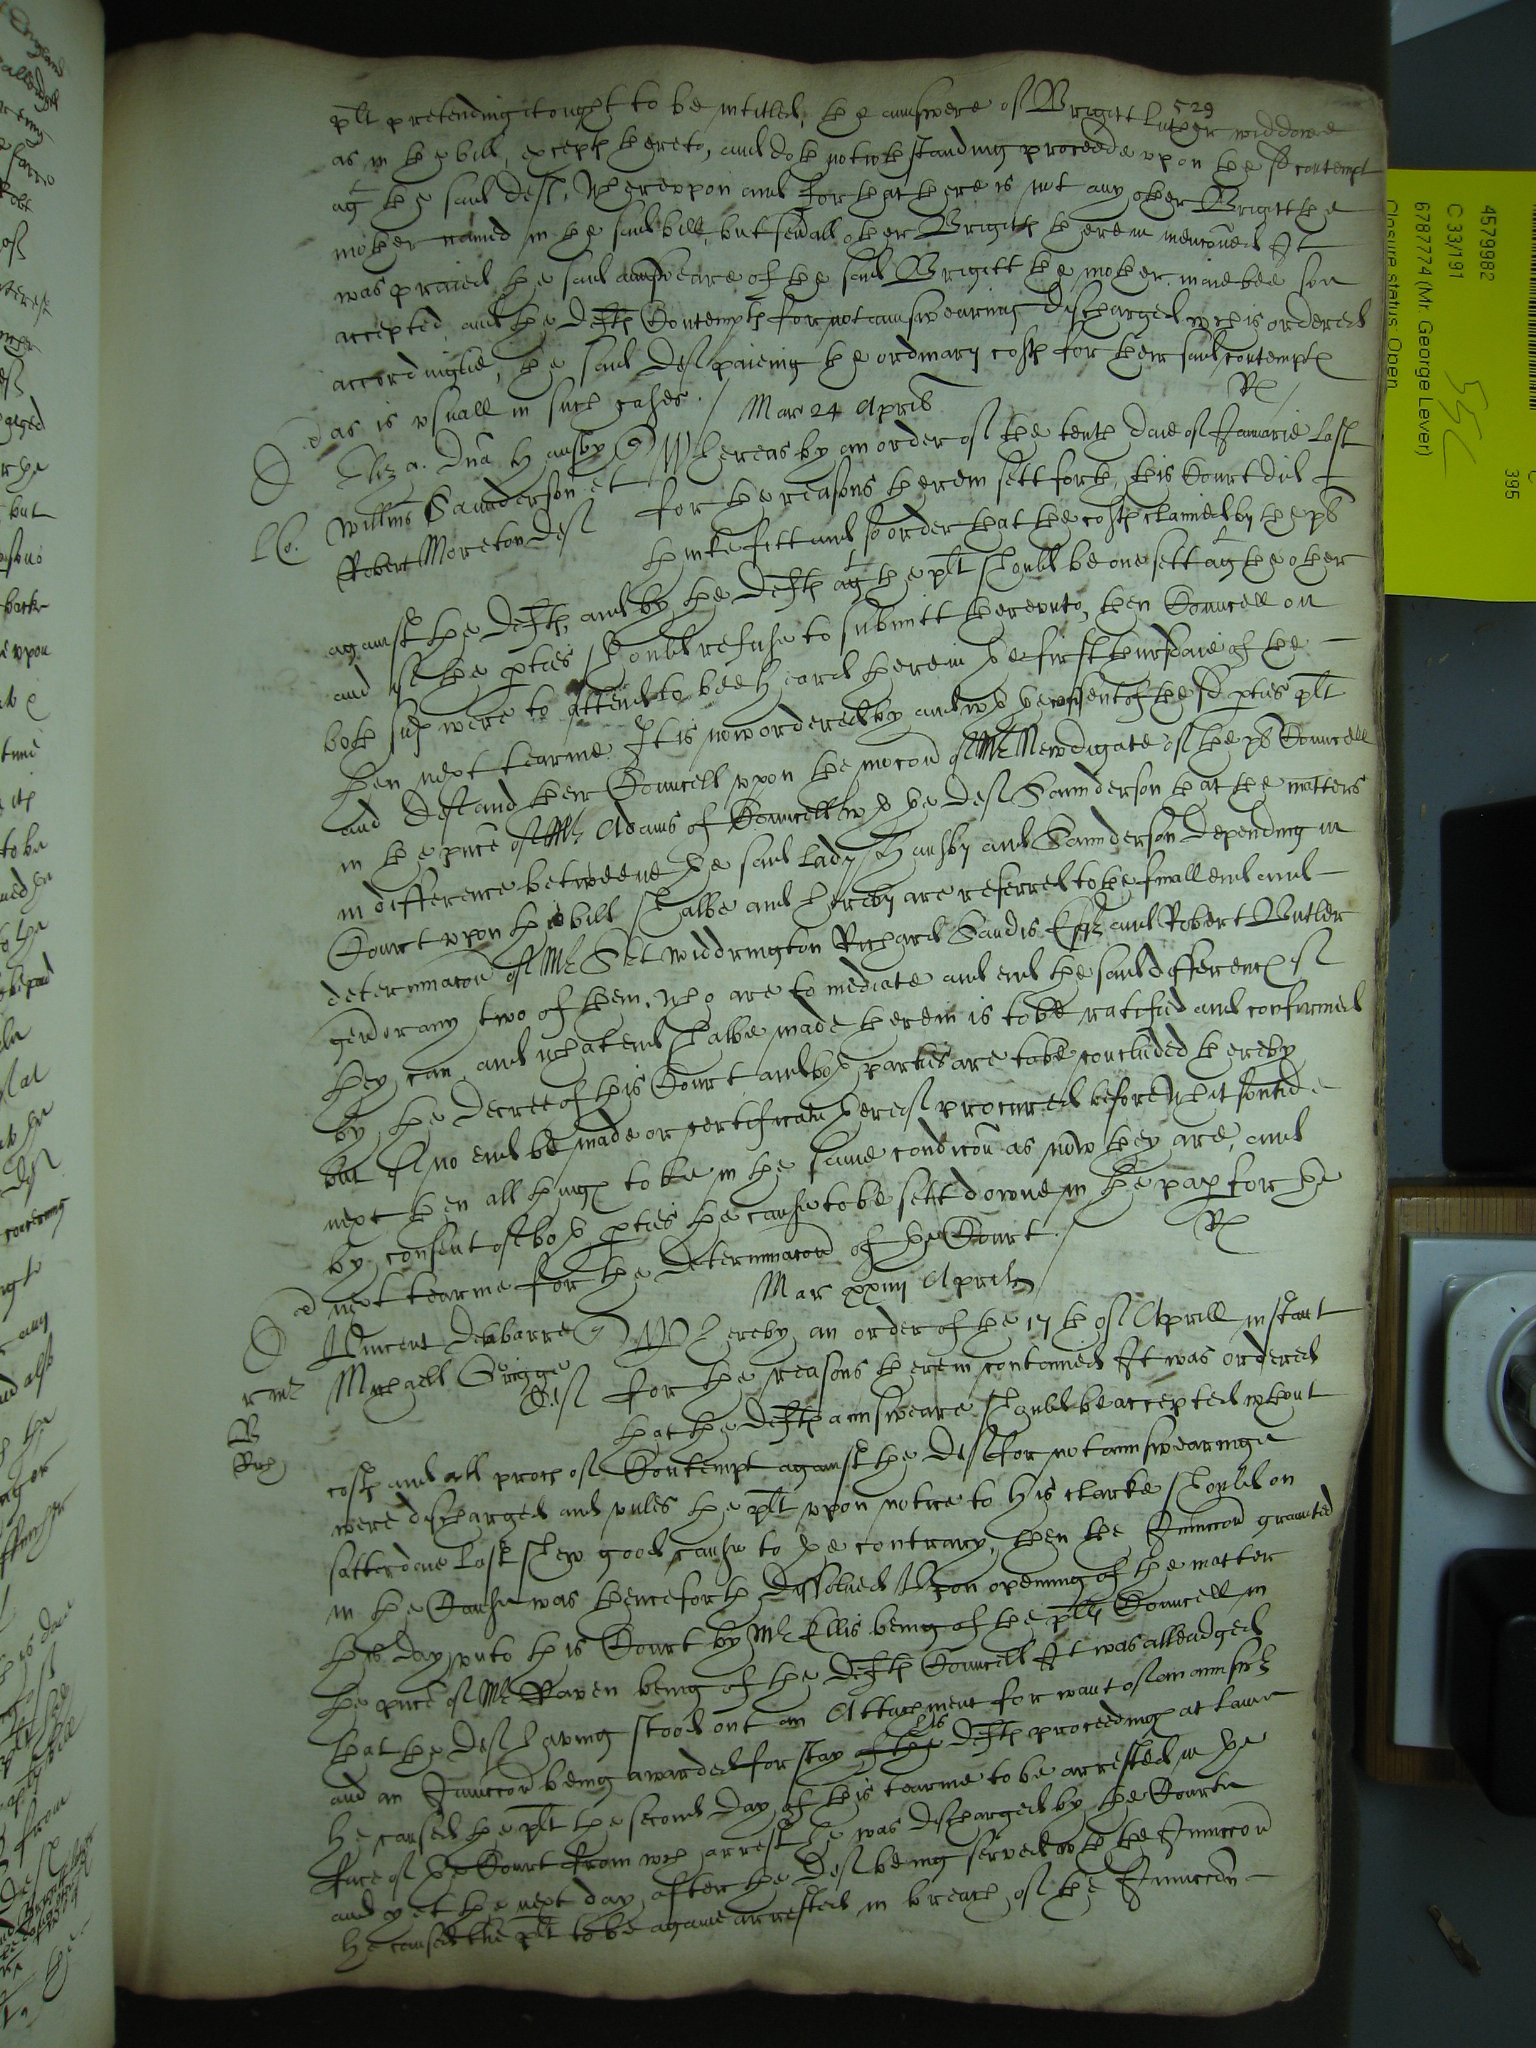 529
plt pretending it ought to be intitled, the answere of Brigitt Luther widdowe
as in the bill, except thereto, and doth notwthstanding proceede upon the sd contempt
agt the said deft, Whereupon and for that there is not any other Brigitt the
mother named in the said bill, but sevall other Brigitts therein menconed It
was praied the said answeare of the said Brigitt the mother maie bee
accepted and the defts Contempts for not answearing discharged wch is ordered
accordinglie, the said deft paieing the ordinary costs for their said contempts
as is usuall in such cases. /
Mar 24 Aprilis
Rx
d
Eliz a. Dna Hansby
Willms Saunderson et
Robert Moreton deft
Whereas by an order of the tenth daie of Januarie last
for the reasons therein sett forth, this Court did
thinke fitt and so order that the costs claimed by the plt
against the defts, and by the defts agt the plt should be one sett agt the other
and if the pties should refuse to submitt thereunto, then Councell on
both sides were to attend to bee heard therein the first thursdaie of the
then next tearme. It is now ordered by and wth the consent of the sd pties plt
and deft and their Councell upon the mocon of Mr Newdigate of the plts Councell
in the pnce of Mr Adams of Councell wth the deft Saunderson that the matters
in difference betweene the said Lady Hansby and Saunderson depending in
Court upon this bill shalbe and hereby are referred to the finall end and
determinacon of Mr Sjt Widdrington Richard Sandis Esqr and Robert Butler
gen or any two of them, who are to mediate and end the said differences if
they can and what end shalbe made therein is to be ratified and confirmed
by the decree of this Court and both parties are to be concluded thereby
but if no end be made or certificate thereof procured before Whitsontide
next then all things to be in the same condicon as now they are, and
by consent of both pties the cause to be sett downe in the pap for the
next tearme for the determinacon of the Court. /
Rx
Mar xxiiii Aprilis
d
Vincent Delabarre
Michaell Grigge
deft
Whereby an order of the 17th of Aprill instant
for the reasons therein contained It was ordered
that the defts answeare should be accepted wthout
costs and all proces of Contempt against the deft for not answearinge
were discharged and unles the plt upon notice to his clarke should on
satterdaie last shew good cause to the contrary, then the Iniuccon graunted
in the Cause was thenceforth dissolved Upon opening of the matter
this day unto this Court by Mr Ellis being of the plts Councell in
the pnce of Mr Raven being of the defts Councell It was alleadged
that the deft having stood out an Attachment for want of an answr
and an Iniuccon being awarded for stay of the his defts proceedings at lawe
he caused the plt the second day of this tearme to be arrested in the
face of the Court from wch arrest he was discharged by the Courte
and yet the next day after the deft being served wth the Iniuccon
he caused the plt to be againe arrested in breach of the Iniuccon
4579982
C 33/191
6787774 (Mr. George Lever)
Closure status: Open
395